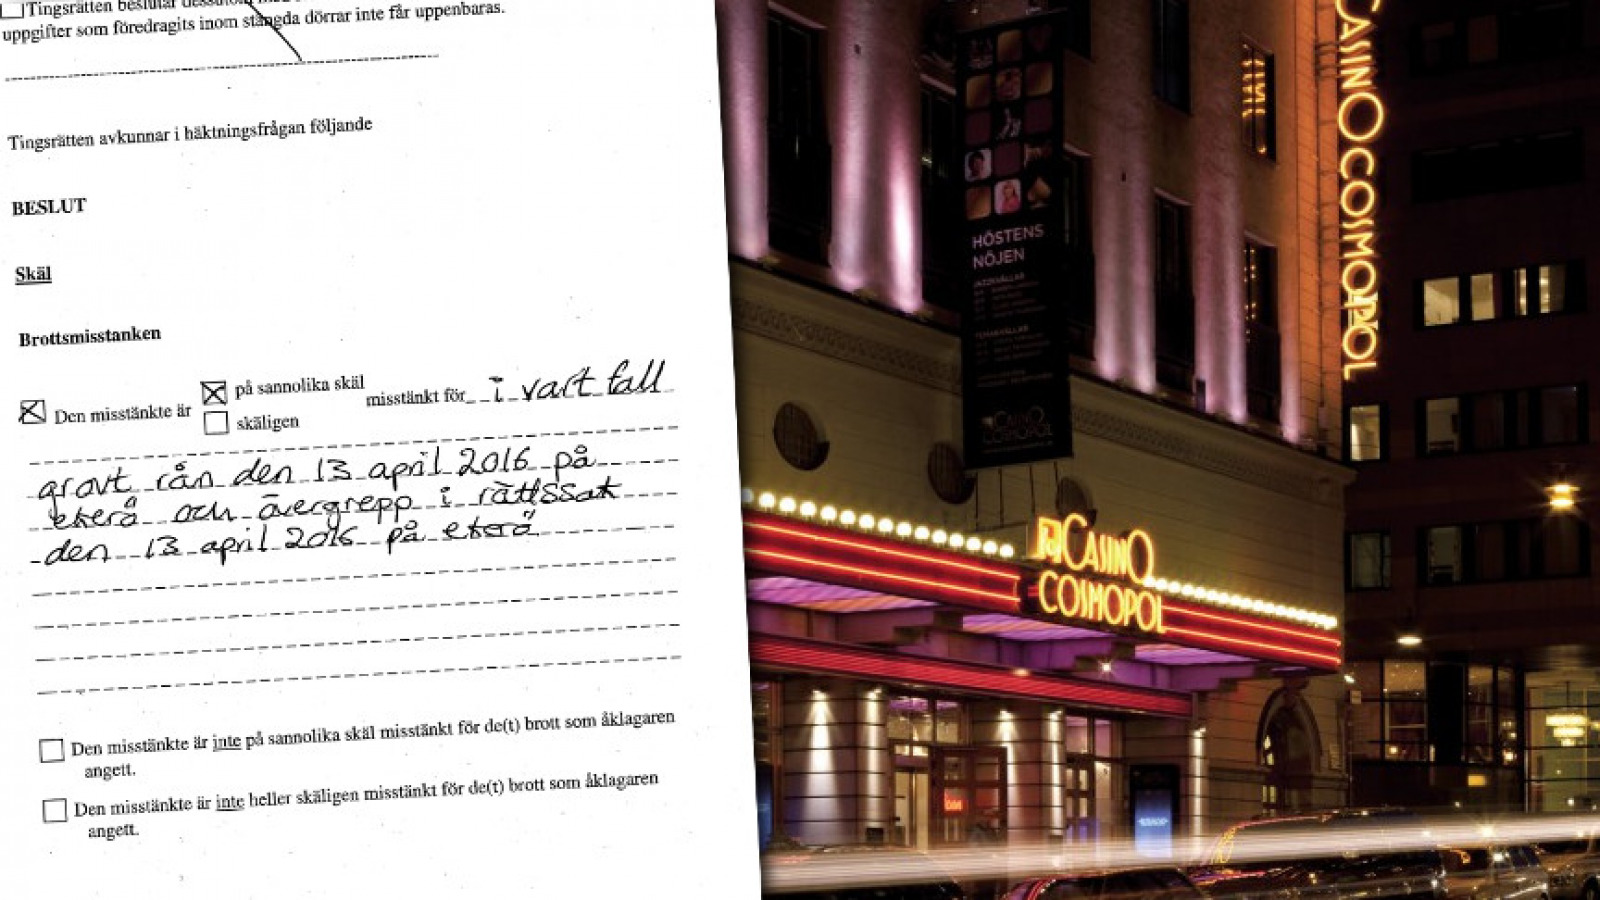 Tingsrätten beslutar dessutom med
uppgifter som föredragits inom stängda dörrar inte får uppenbaras.
Tingsrätten avkunnar i häktningsfrågan följande
BESLUT
Skäl
Brottsmisstanken
Den misstänkte är på sannolika skäl misstänkt för i vart fall
skäligen
grovt rån den 13 april 2016 på
ekerö och övergrepp i rättssak
den 13 april 2016 på ekerö
Den misstänkte är inte på sannolika skäl misstänkt för de(t) brott som åklagaren
angett.
Den misstänkte är inte heller skäligen misstänkt för de(t) brott som åklagaren
angett.
CASINO COSMOPOL
HÖSTENS
NÖJEN
CASINO
COSMOPOL
CASINO
COSMOPOL